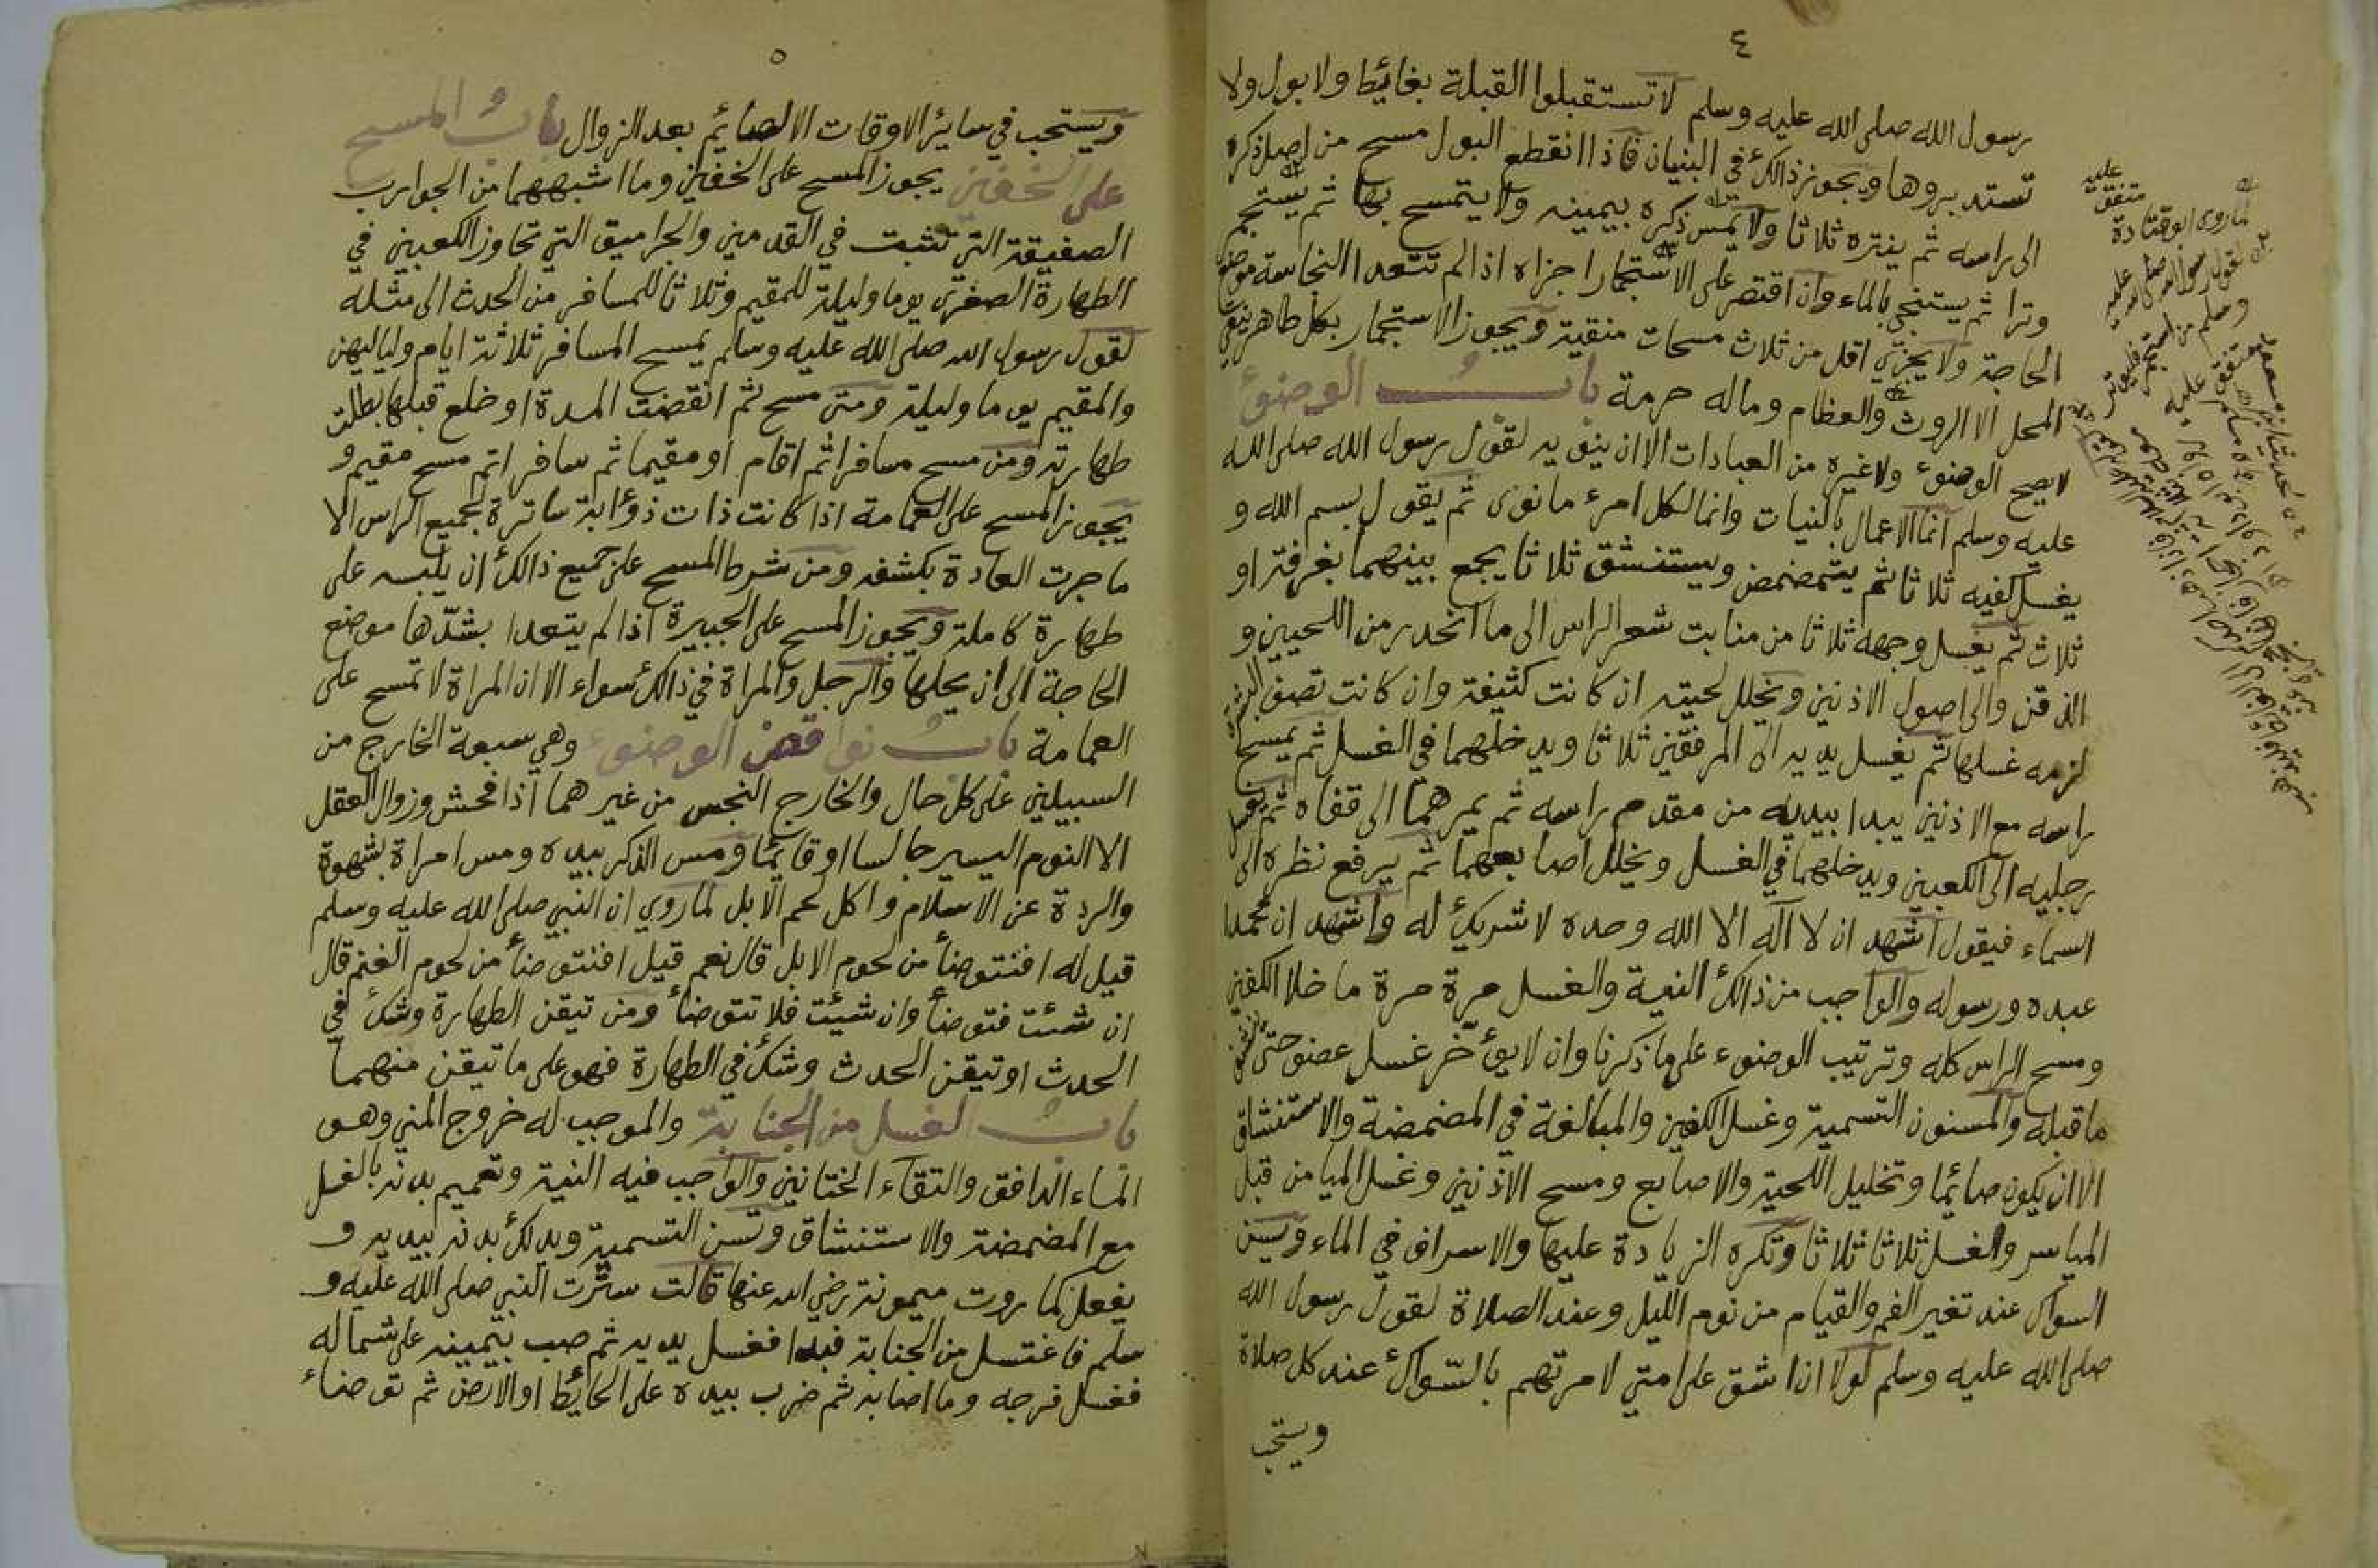 ٤
رسول الله صلى الله عليه وسلم لا تستقبلوا القبلة بغائط ولا بول ولا
تستدبروها ويجوز ذالك في البنيان فاذا انقطع البول مسح من اصل ذكره
الى راسه ثم ينتره ثلاثا ولا يمس ذكره بيمينه ولا يتمسح بها ثم يستجمر
وترا ثم يستنجي بالماء وان اقتصر على الاستجمار اجزاه اذا لم تتعدا النجاسة موضع
الحاجة ولا يجزي اقل من ثلاث مسحات منقية ويجوز الاستجمار بكل طاهر ينقي
المحل الا الروث والعظام وماله حرمة باب الوضوء
لا يصح الوضوء ولا غيره من العبادات الا ان ينويه لقول رسول الله صلى الله
عليه وسلم انما الاعمال بالنيات وانما لكل امرء ما نوى ثم يقول بسم الله و
يغسل كفيه ثلاثا ثم يتمضمض ويستنشق ثلاثا يجمع بينهما بغرفة او
ثلاث ثم يغسل وجهه ثلاثا من منابت شعر الراس الى ما انحدر من اللحيين و
الذقن والى اصول الاذنين ويخلل لحيته ان كانت كثيفة وان كانت تصف البشرة
لزمه غسلها ثم يغسل يديه الى المرفقين ثلاثا ويدخلهما في الغسل ثم يمسح
راسه مع الاذنين يبدا بيديه من مقدم راسه ثم يمرهما الى قفاه ثم يغسل
رجليه الى الكعبين ويدخلهما في الغسل ويخلل اصابعهما ثم يرفع نظره الى
السماء فيقول اشهد ان لا اله الا الله وحده لا شريك له واشهد ان محمدا
عبده ورسوله والواجب من ذالك النية والغسل مرة مرة ما خلا الكفين
ومسح الراس كله وترتيب الوضوء على ما ذكرنا وان لا يؤخر غسل عضو حتى ينشف
ما قبله والمسنون التسمية وغسل الكفين والمبالغة في المضمضة والاستنشاق
الا ان يكون صائما وتخليل اللحية والاصابع ومسح الاذنين وغسل الميامن قبل
المياسر والغسل ثلاثا ثلاثا وتكره الزيادة عليها والاسراف في الماء ويسن
السواك عند تغير الفم والقيام من نوم الليل وعند الصلاة لقول رسول الله
صلى الله عليه وسلم لولا ان اشق على امتي لامرتهم بالسواك عند كل صلاة
ويستحب
متفق عليه
لما روى ابو قتادة
٥
ويستحب في سائر الاوقات الا لصائم بعد الزوال باب المسح
على الخفين يجوز المسح على الخفين وما اشبههما من الجوارب
الصفيقة التي تثبت في القدمين والجراميق التي تجاوز الكعبين في
الطهارة الصغرى يوما وليلة للمقيم وثلاثا للمسافر من الحدث الى مثله
لقول رسول الله صلى الله عليه وسلم يمسح المسافر ثلاثة ايام ولياليهن
والمقيم يوما وليلة ومتى مسح ثم انقضت المدة او خلع قبلها بطلت
طهارته ومن مسح مسافرا ثم اقام او مقيما ثم سافر اتم مسح مقيم و
يجوز المسح على العمامة اذا كانت ذات ذؤابة ساترة لجميع الراس الا
ما جرت العادة بكشفه ومن شرط المسح على جميع ذالك ان يلبسه على
طهارة كاملة ويجوز المسح على الجبيرة اذا لم يتعدا بشدها موضع
الحاجة الى ان يحلها والرجل والمراة في ذالك سواء الا ان المراة لا تمسح على
العمامة باب نواقض الوضوء وهي سبعة الخارج من
السبيلين على كل حال والخارج النجس من غيرهما اذا فحش وزوال العقل
الا النوم اليسير جالسا او قائما ومس الذكر بيده ومس امراة بشهوة
والردة عن الاسلام واكل لحم الابل لما روي ان النبي صلى الله عليه وسلم
قيل له افنتوضأ من لحوم الابل قال نعم قيل افنتوضأ من لحوم الغنم قال
ان شئت فتوضأ وان شئت فلا تتوضأ ومن تيقن الطهارة وشك في
الحدث او تيقن الحدث وشك في الطهارة فهو على ما تيقن منهما
باب الغسل من الجنابة والموجب له خروج المني وهو
الماء الدافق والتقاء الختانين والواجب فيه النية وتعميم بدنه بالغسل
مع المضمضة والاستنشاق وتسن التسمية ويدلك بدنه بيديه و
يفعل كما روت ميمونة رضي الله عنها قالت سترت النبي صلى الله عليه و
سلم فاغتسل من الجنابة فبدا فغسل يديه ثم صب بيمينه على شماله
فغسل فرجه وما اصابه ثم ضرب بيده على الحائط او الارض ثم توضاء